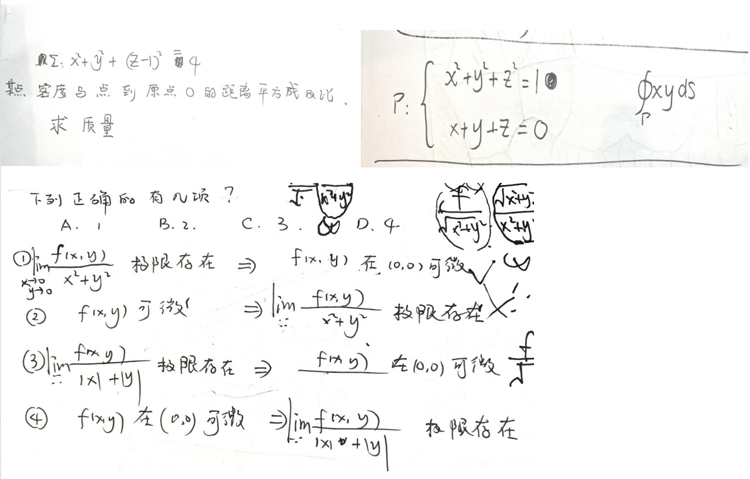 Σ: x²+y²+(z-1)²=4
某点 密度与点到原点O的距离平方成反比.
求 质量
P: { x²+y²+z²=1
x+y+z=0
∮xyds
P
下列正确的有几项?
A. 1 B. 2. C. 3. D. 4
① lim f(x,y)/x²+y² 极限存在 ⇒ f(x,y) 在(0,0)可微 √
x→0
y→0
② f(x,y)可微 ⇒ lim f(x,y)/x²+y² 极限存在 ×
③ lim f(x,y)/|x|+|y| 极限存在 ⇒ f(x,y) 在(0,0)可微
④ f(x,y)在(0,0)可微 ⇒ lim f(x,y)/|x|+|y| 极限存在